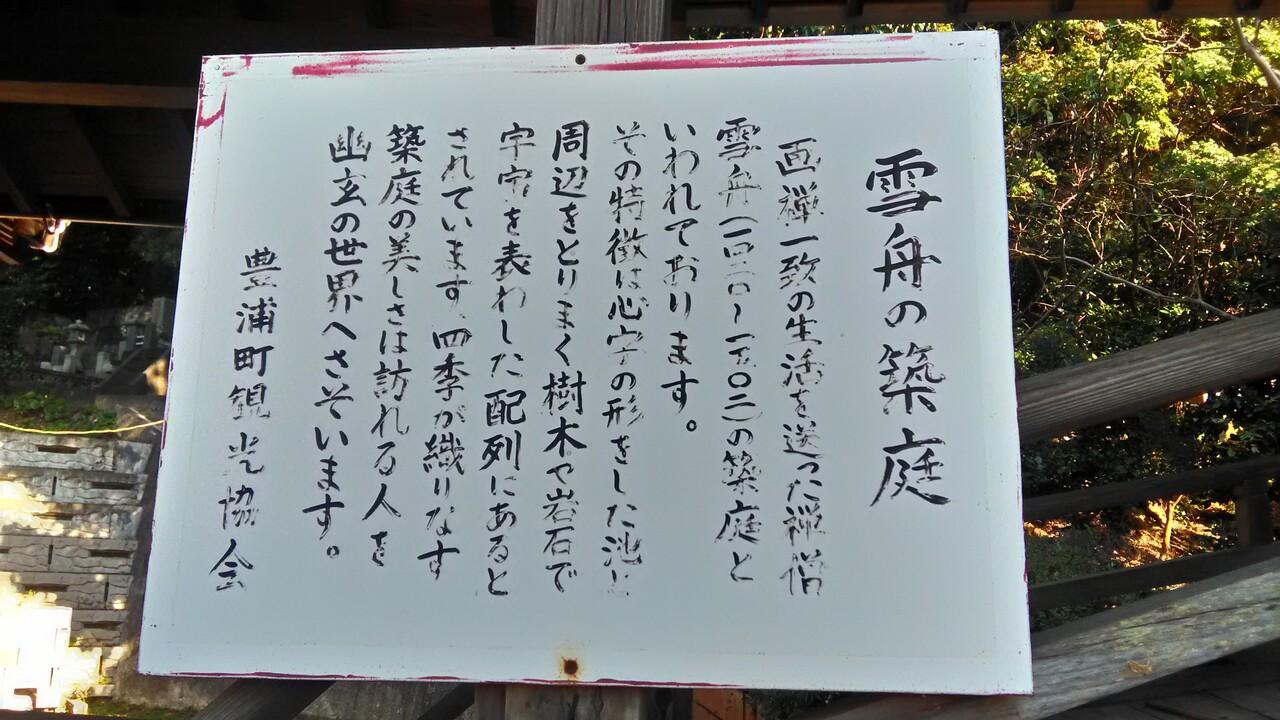 雪舟の築庭
画禅一致の生活を送った禅僧
雪舟(一四二〇〜一五〇二)の築庭と
いわれております。
その特徴は心字の形をした池と
周辺をとりまく樹木や岩石で
宇宙を表わした配列にあると
されています。四季が織りなす
築庭の美しさは訪れる人を
幽玄の世界へさそいます。
豊浦町観光協会